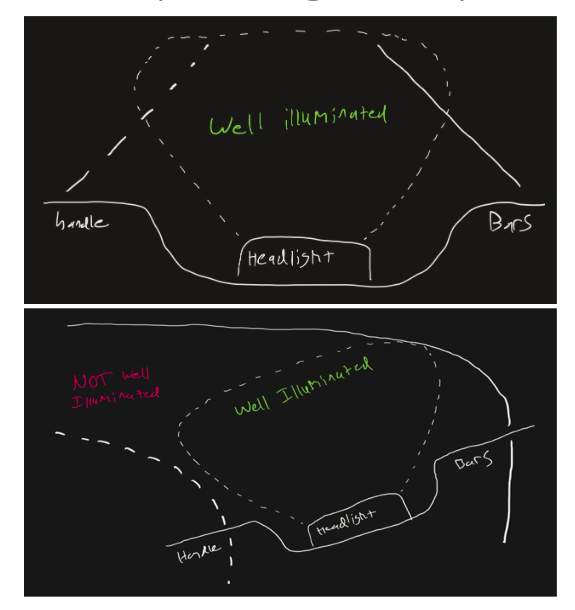 Well illuminated
handle
Bars
Headlight
NOT well
Illuminated
Well Illuminated
Bars
Headlight
Handle